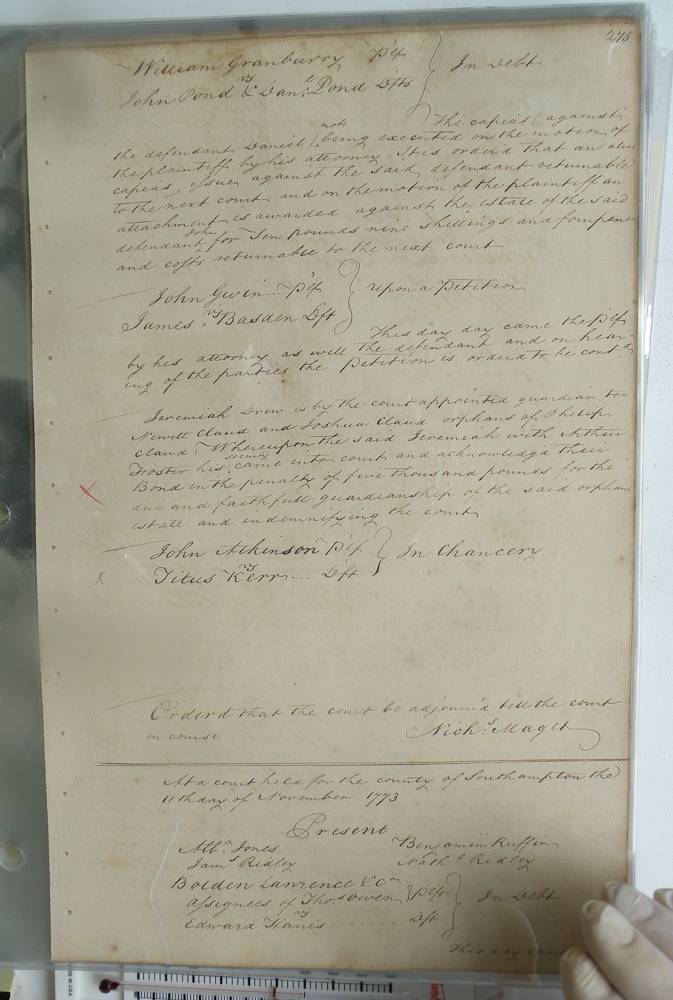 275
William Granburry Pltf
vs
John Pond & Danl. Pond Dfts
In Debt
The capias against
the defendant Daniel not being executed on the motion of
the plaintiff by his attorney It is orderd that an alias
capias issue against the said defendant returnable
to the next court and on the motion of the plaintiff an
attachment is awarded against the estate of the said
defendant John for Ten pounds nine shillings and fourpence
and costs returnable to the next court
John Gwin Pltf
vs
James Basden Dft
upon a Petition
This day day came the Pltf
by his attorney as well the defendant and on hear-
ing of the parties the Petition is orderd to be contd.
Jeremiah Drew is by the court appointed guardian to
Newett Claud and Joshua Claud orphans of Philip
Claud. Whereupon the said Jeremiah with Arthur
Foster his security came into court and acknowledgd their
Bond in the penalty of five thousand pounds for the
due and faithfull guardianship of the said orphans
estate and indemnifying the court
John Atkinson Pltf
vs
Titus Kerr Dft
In Chancery
Orderd that the court be adjournd till the court
in course
Nichs. Maget
At a court held for the county of Southampton the
11th day of November 1773
Present
Albn. Jones
Benjamin Ruffin
Jams. Ridley
Nathl. Ridley
Bolden Lawrence & Com
assignees of Thos Owen Pltfs
vs
Edward Harris Dft
In Debt
This day came